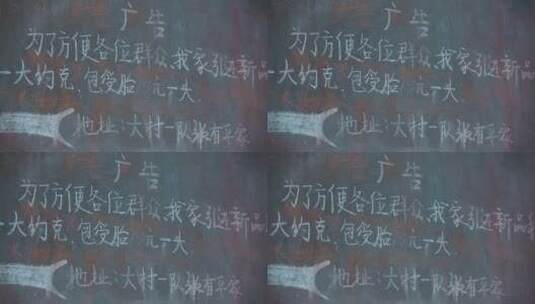 广告
为了方便各位群众我家引进新品
大约克,包受胎 元一次
地址:大村一队张有平家
广告
为了方便各位群众我家引进新品
大约克,包受胎 元一次
地址:大村一队张有平家
广告
为了方便各位群众我家引进新品
大约克,包受胎 元一次
地址:大村一队张有平家
广告
为了方便各位群众我家引进新品
大约克,包受胎 元一次
地址:大村一队张有平家